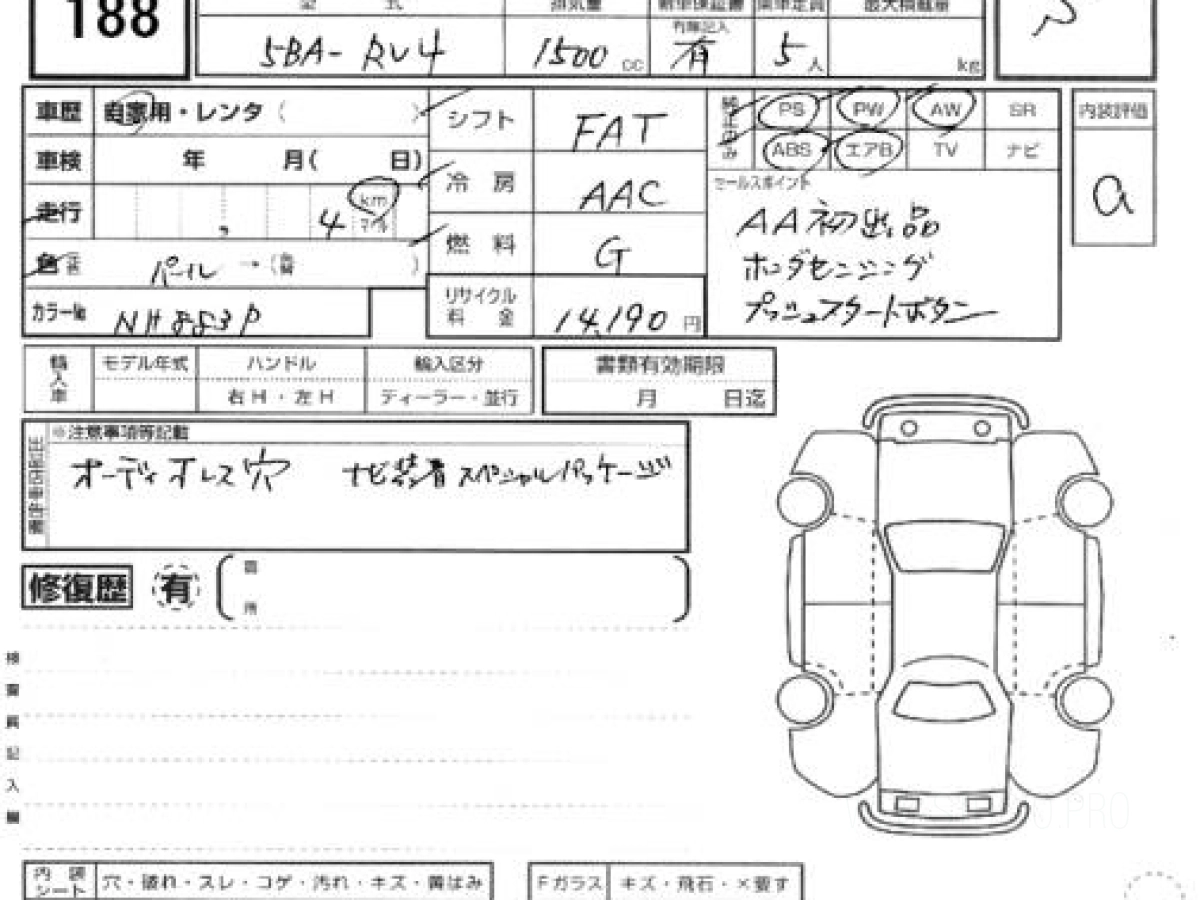 188
型 式 排気量 新車保証書 乗車定員 最大積載量
有無記入
5BA- RV4 1500 cc 有 5 人 kg
車歴 自家用・レンタ( ) シフト FAT PS PW AW SR 内装評価
車検 年 月( 日) ABS エアB TV ナビ
冷房 AAC セールスポイント a
走行 , 4 km マイル AA初出品
燃料 G ホンダセンシング
色 パール →( ) プッシュスタートボタン
カラー№ NH883P リサイクル料金 14,190 円
輸入車 モデル年式 ハンドル 輸入区分 書類有効期限
右H・左H ディーラー・並行 月 日迄
※注意事項等記載
オーディオレス穴 ナビ装着スペシャルパッケージ
修復歴 有
検査員記入欄
内装シート 穴・破れ・スレ・コゲ・汚れ・キズ・黄ばみ Fガラス キズ・飛石・×要す